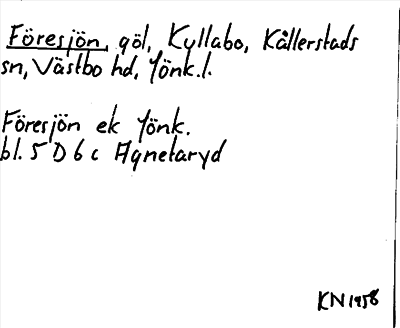 Föresjön, göl, Kyllabo, Kållerstads
sn, Västbo hd, Jönk.l.
Föresjön ek Jönk.
bl. 5 D 6 c Agnetaryd
KN 1958